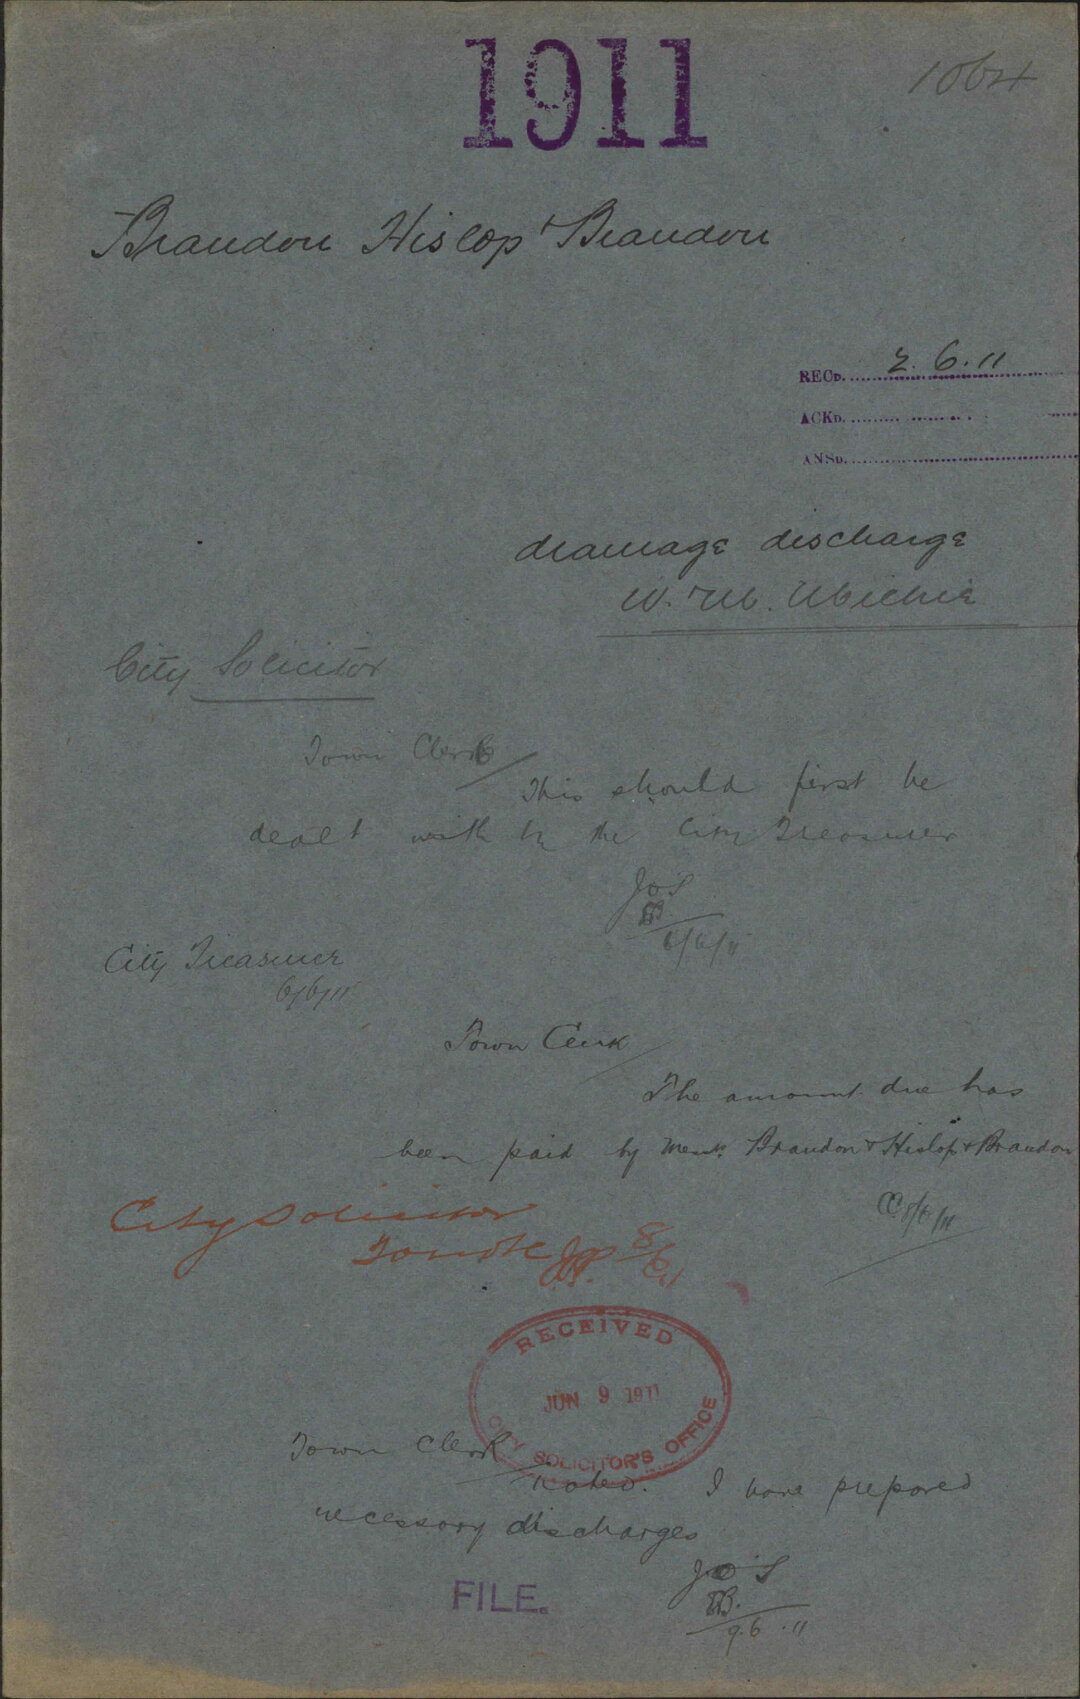 1911
1064
Brandon Hislop & Brandon
RECD. 2.6.11
ACKD.
ANSD.
drainage discharge
W. M.
City Solicitor
Town Clerk
This should first be
dealt with by the City Treasurer
JOS
6/6/11
City Treasurer
6/6/11
Town Clerk
The amount due has
been paid by Messrs. Brandon & Hislop & Brandon
8/6/11
City Solicitor
To note 8/6/11
RECEIVED
JUN 9 1911
CITY SOLICITOR'S OFFICE
Town Clerk
Noted. I have prepared
necessary discharges
JOS
9.6.11
FILE.